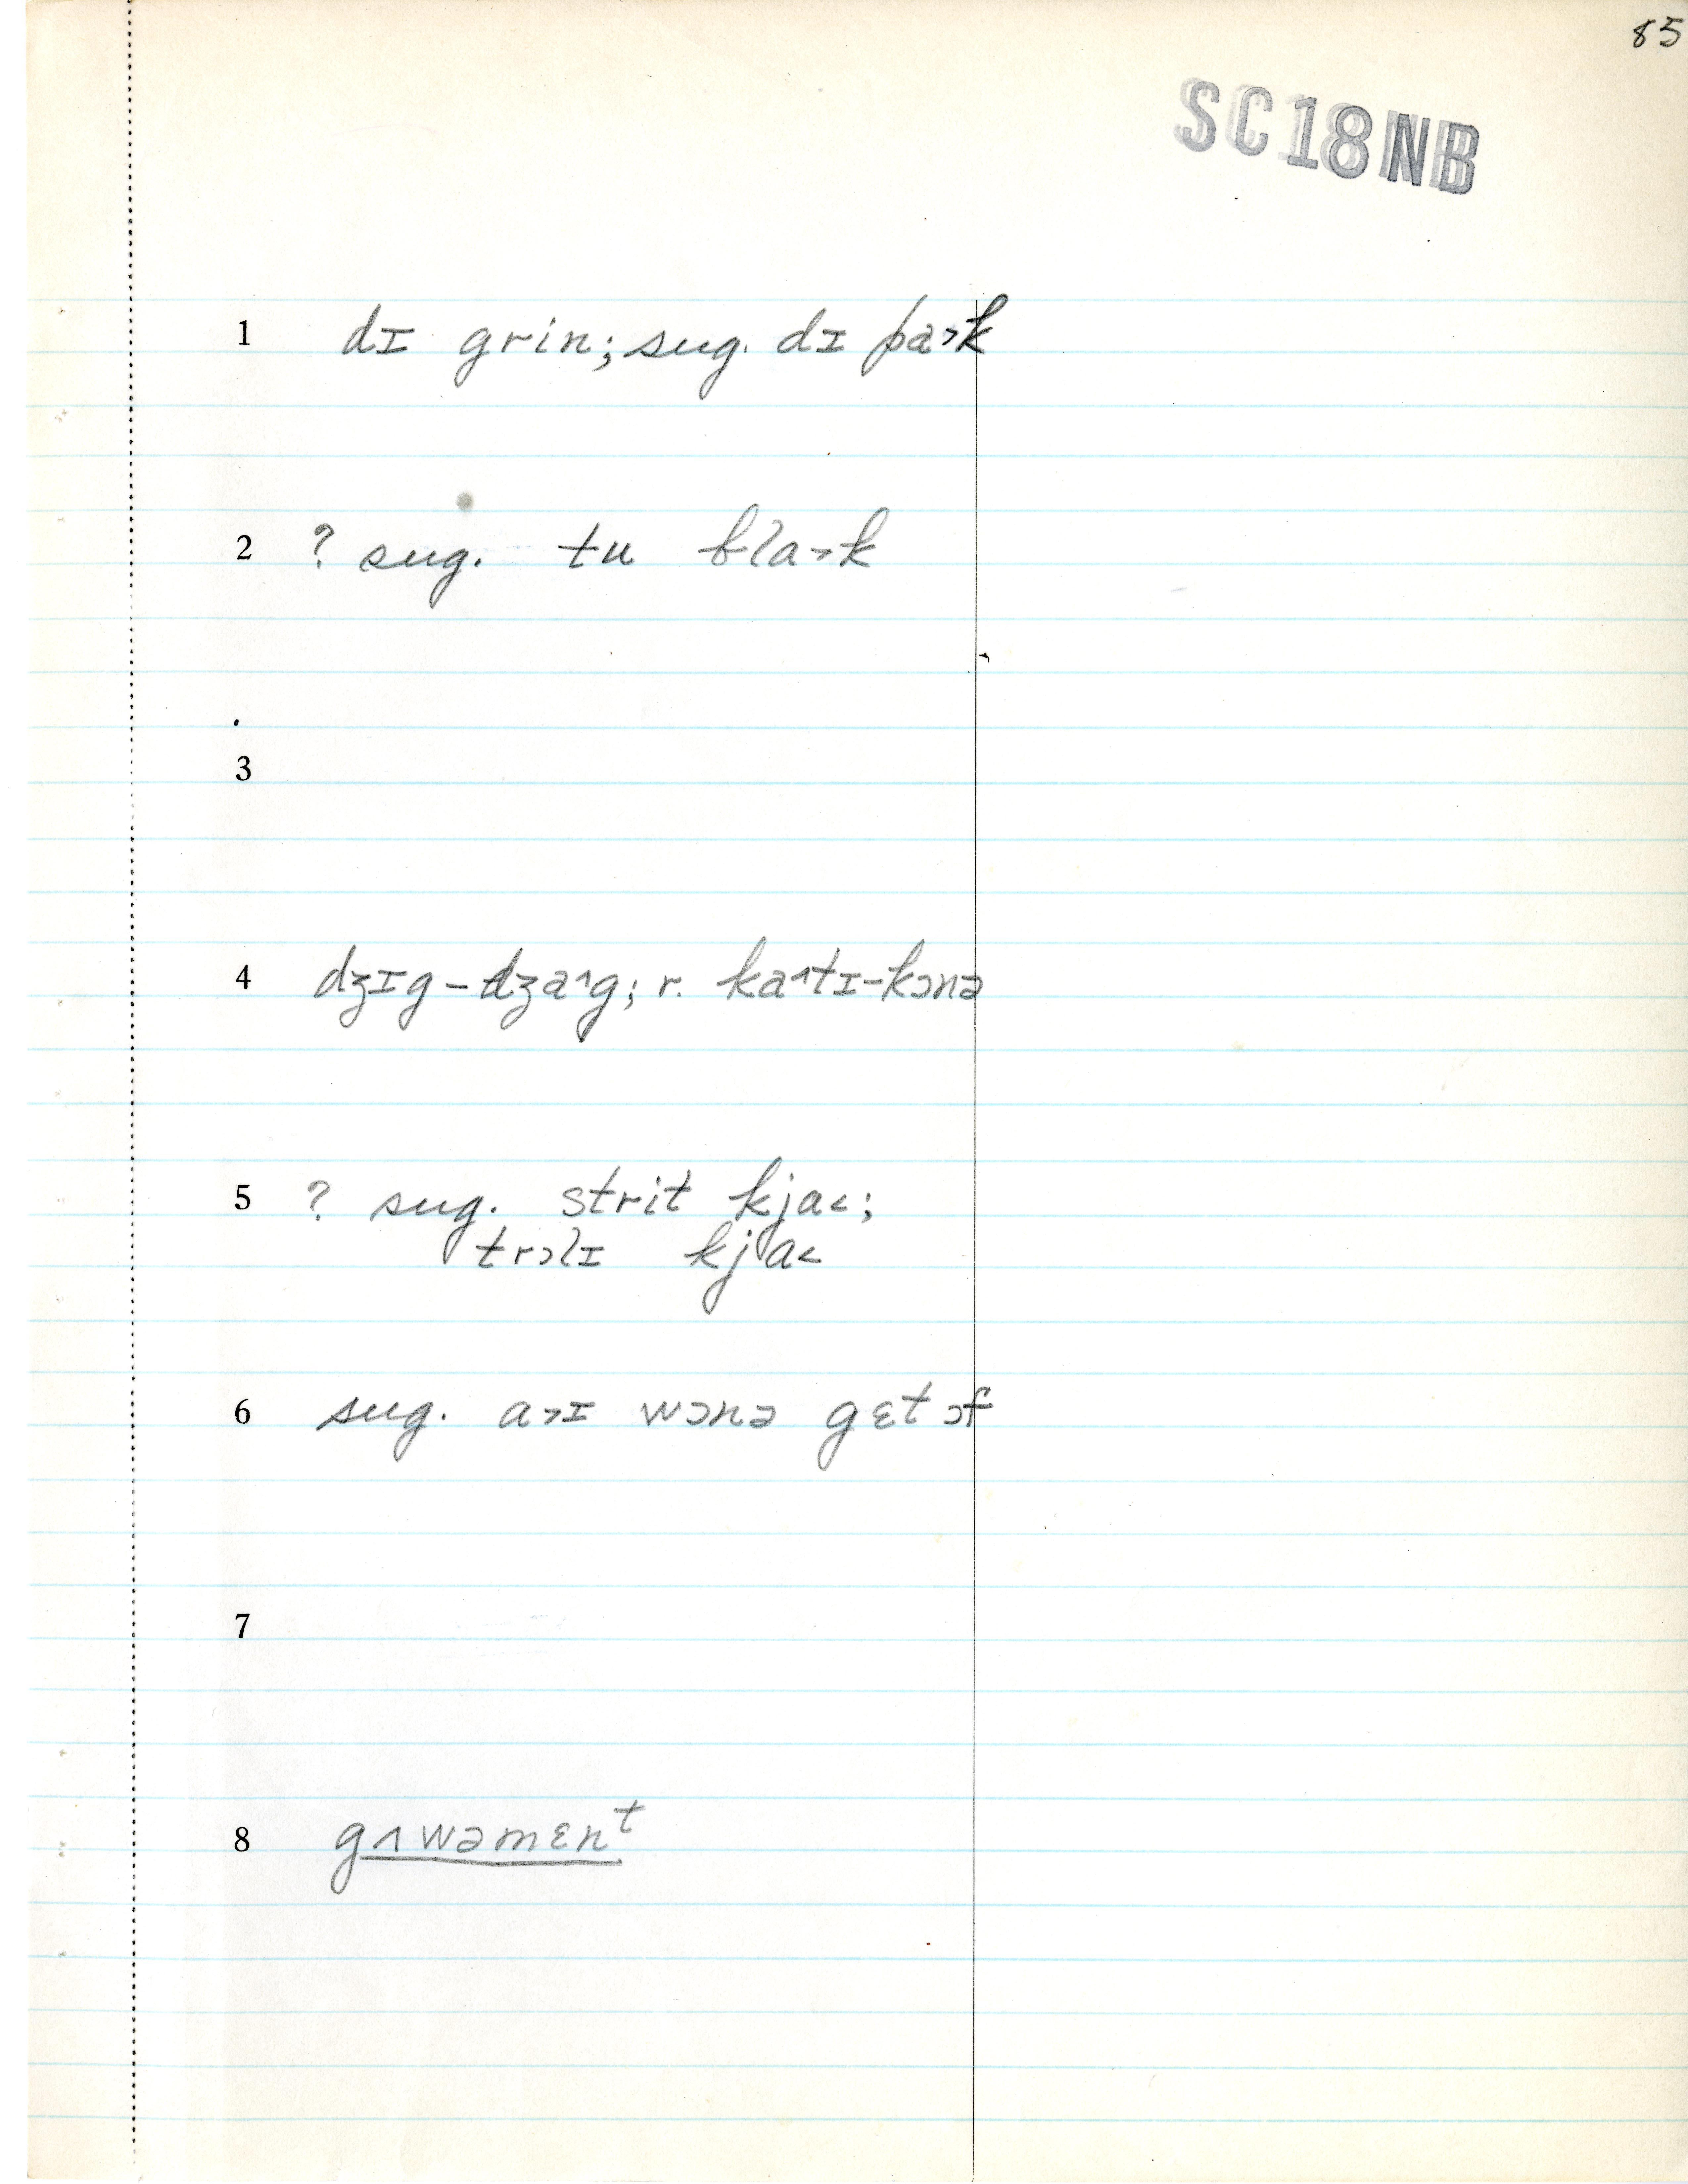 85
SC18NB
1 dɪ grin; sug. dɪ pa˃k
2 ? sug. tu bla˃k
3
4 dʒɪg-dʒa˄g; r. ka˄tɪ-kɔnə
5 ? sug. strit kja˂;
trɔlɪ kja˂
6 sug. a˃ɪ wɔnə gɛt ɔf
7
8 gʌwəmɛnᵗ